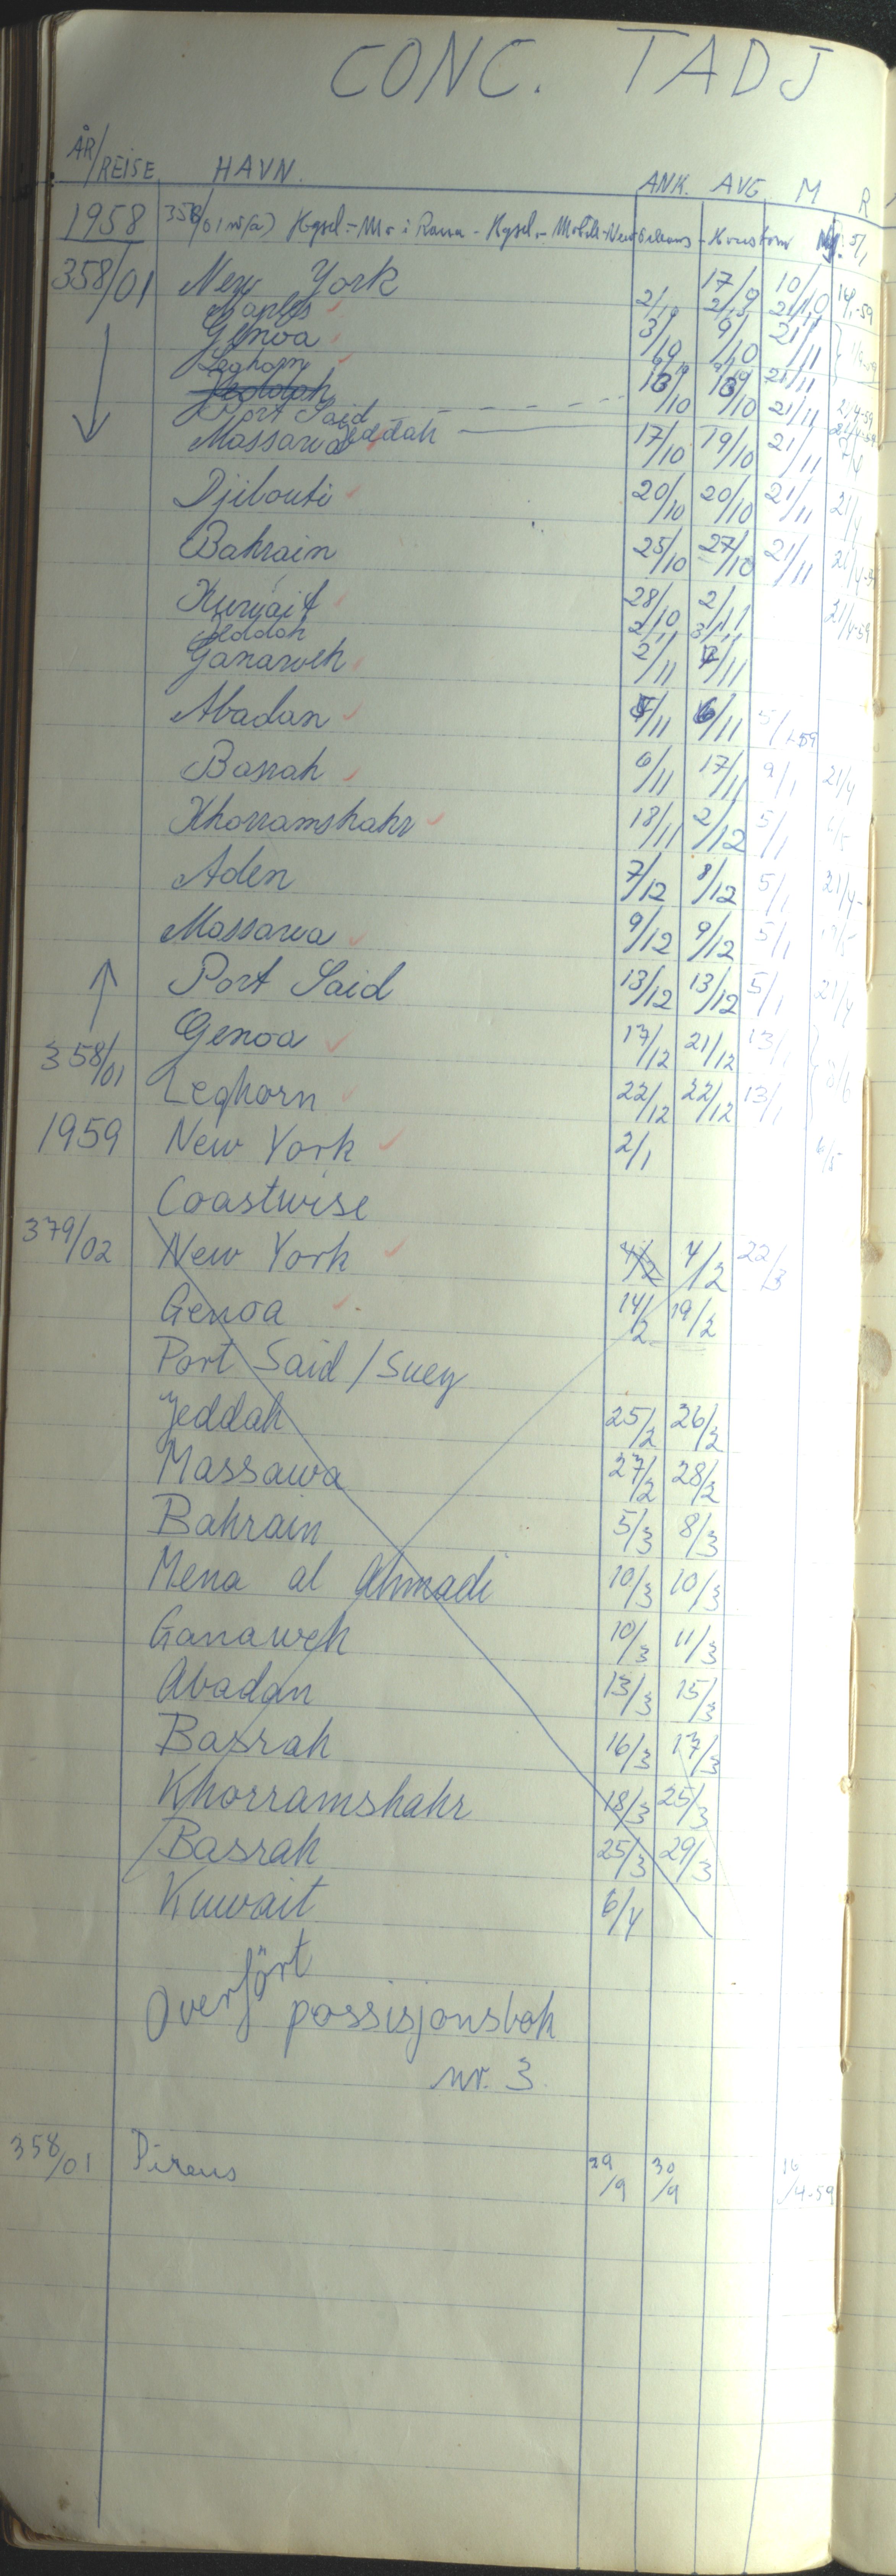 CONC. TADJ
ÅR/REISE HAVN. ANK. AVG M R
1958
358/01 New York 17/9 10/10
Naples
Genoa 3/10 9/10 21/11
Leghorn
Jeddah 13/10 13/10 21/11
Port Said
Massawa Jeddah 17/10 19/10 21/11
Djibouti 20/10 20/10 21/11 21/4
Bahrain 25/10 27/10 21/11
Kuwait 28/10 2/11 21/4-59
Jeddah 2/11 3/11
Ganaweh 2/11 4/11
Abadan 5/11 6/11 5/1-59
Basrah 6/11 17/11 9/1 21/4
Khorramshahr 18/11 2/12 5/1
Aden 7/12 8/12 5/1 21/4
Massawa 9/12 9/12 5/1
Port Said 13/12 13/12 5/1 21/4
Genoa 17/12 21/12 13/1
358/01
Leghorn 22/12 22/12 13/1
1959 New York 2/1
Coastwise
379/02 New York 4/2 4/2 22/3
Genoa 14/2 19/2
Port Said/Suez
Jeddah 25/2 26/2
Massawa 27/2 28/2
Bahrain 5/3 8/3
Mena al Ahmadi 10/3 10/3
Ganaweh 10/3 11/3
Abadan 13/3 15/3
Basrah 16/3 17/3
Khorramshahr 18/3 25/3
Basrah 25/3 29/3
Kuwait 6/4
Overført
possisjonsbok
nr. 3
358/01 Pireus 29/9 30/9 16/4-59